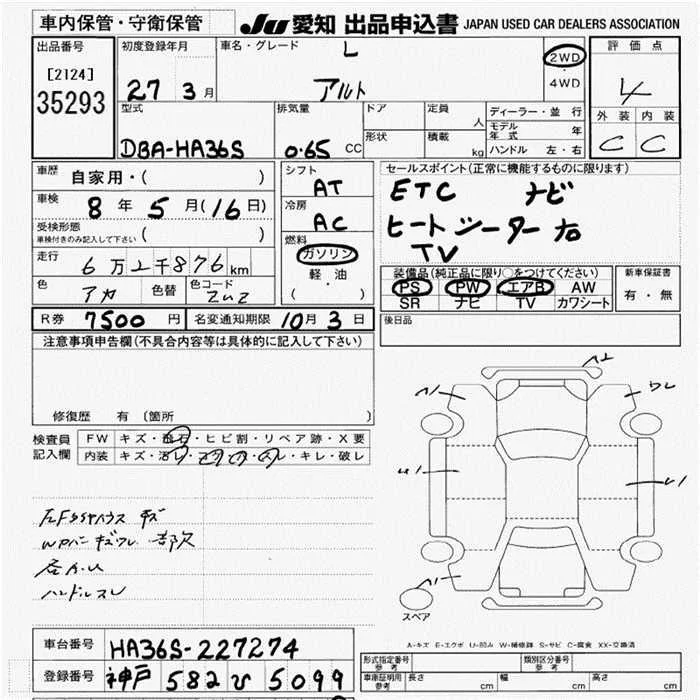 車内保管・守衛保管
JU 愛知 出品申込書 JAPAN USED CAR DEALERS ASSOCIATION
出品番号
[2124]
35293
初度登録年月
27 3月
車名・グレード
L
アルト
2WD
・
4WD
評価点
4
外装 内装
C C
型式
DBA-HA36S
排気量
0.65 CC
ドア
形状
定員 人
積載 kg
ディーラー・並行
モデル年式 年
ハンドル 左・右
車歴
自家用・( )
車検
8年5月(16日)
受検形態
車検付きのみ記入して下さい ( )
走行
6万2千876km
色
アカ
色替
色コード
ZUZ
シフト
AT
冷房
AC
燃料
ガソリン
軽油
( ・ )
セールスポイント(正常に機能するものに限ります)
ETC ナビ
ヒートシーター
TV
装備品(純正品に限り○をつけてください)
PS PW エアB AW
SR ナビ TV カワシート
新車保証書
有・無
R券 7500円
名変通知期限 10月3日
後日品
注意事項申告欄(不具合内容等は具体的に記入して下さい)
修復歴 有 〔箇所 〕
検査員記入欄
FW キズ・飛石・ヒビ割・リペア跡・X要
内装 キズ・汚レ・コゲ・穴・スレ・キレ・破レ
ハンドルスレ
スペア
A-キズ E-エクボ U-凹み W-補修跡 S-サビ C-腐食 XX-交換済
車台番号 HA36S-227274
登録番号 神戸 582 ひ 5099
形式指定番号
参考
類別区分番号
参考
車庫証明用
参考
長さ cm 幅 cm 高さ cm